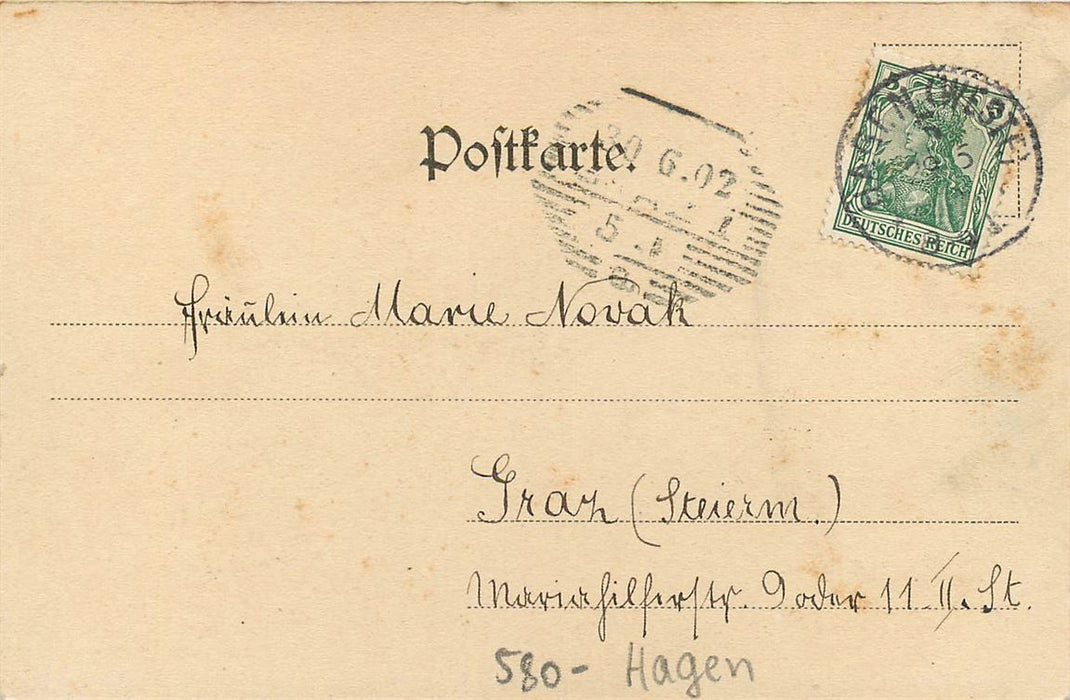 Postkarte.
30 6.02
5
HAGEN (WESTF)
5
DEUTSCHES REICH
Fräulein Marie Novák
Graz (Steierm.)
Mariahilferstr. 9 oder 11 II. St.
580- Hagen